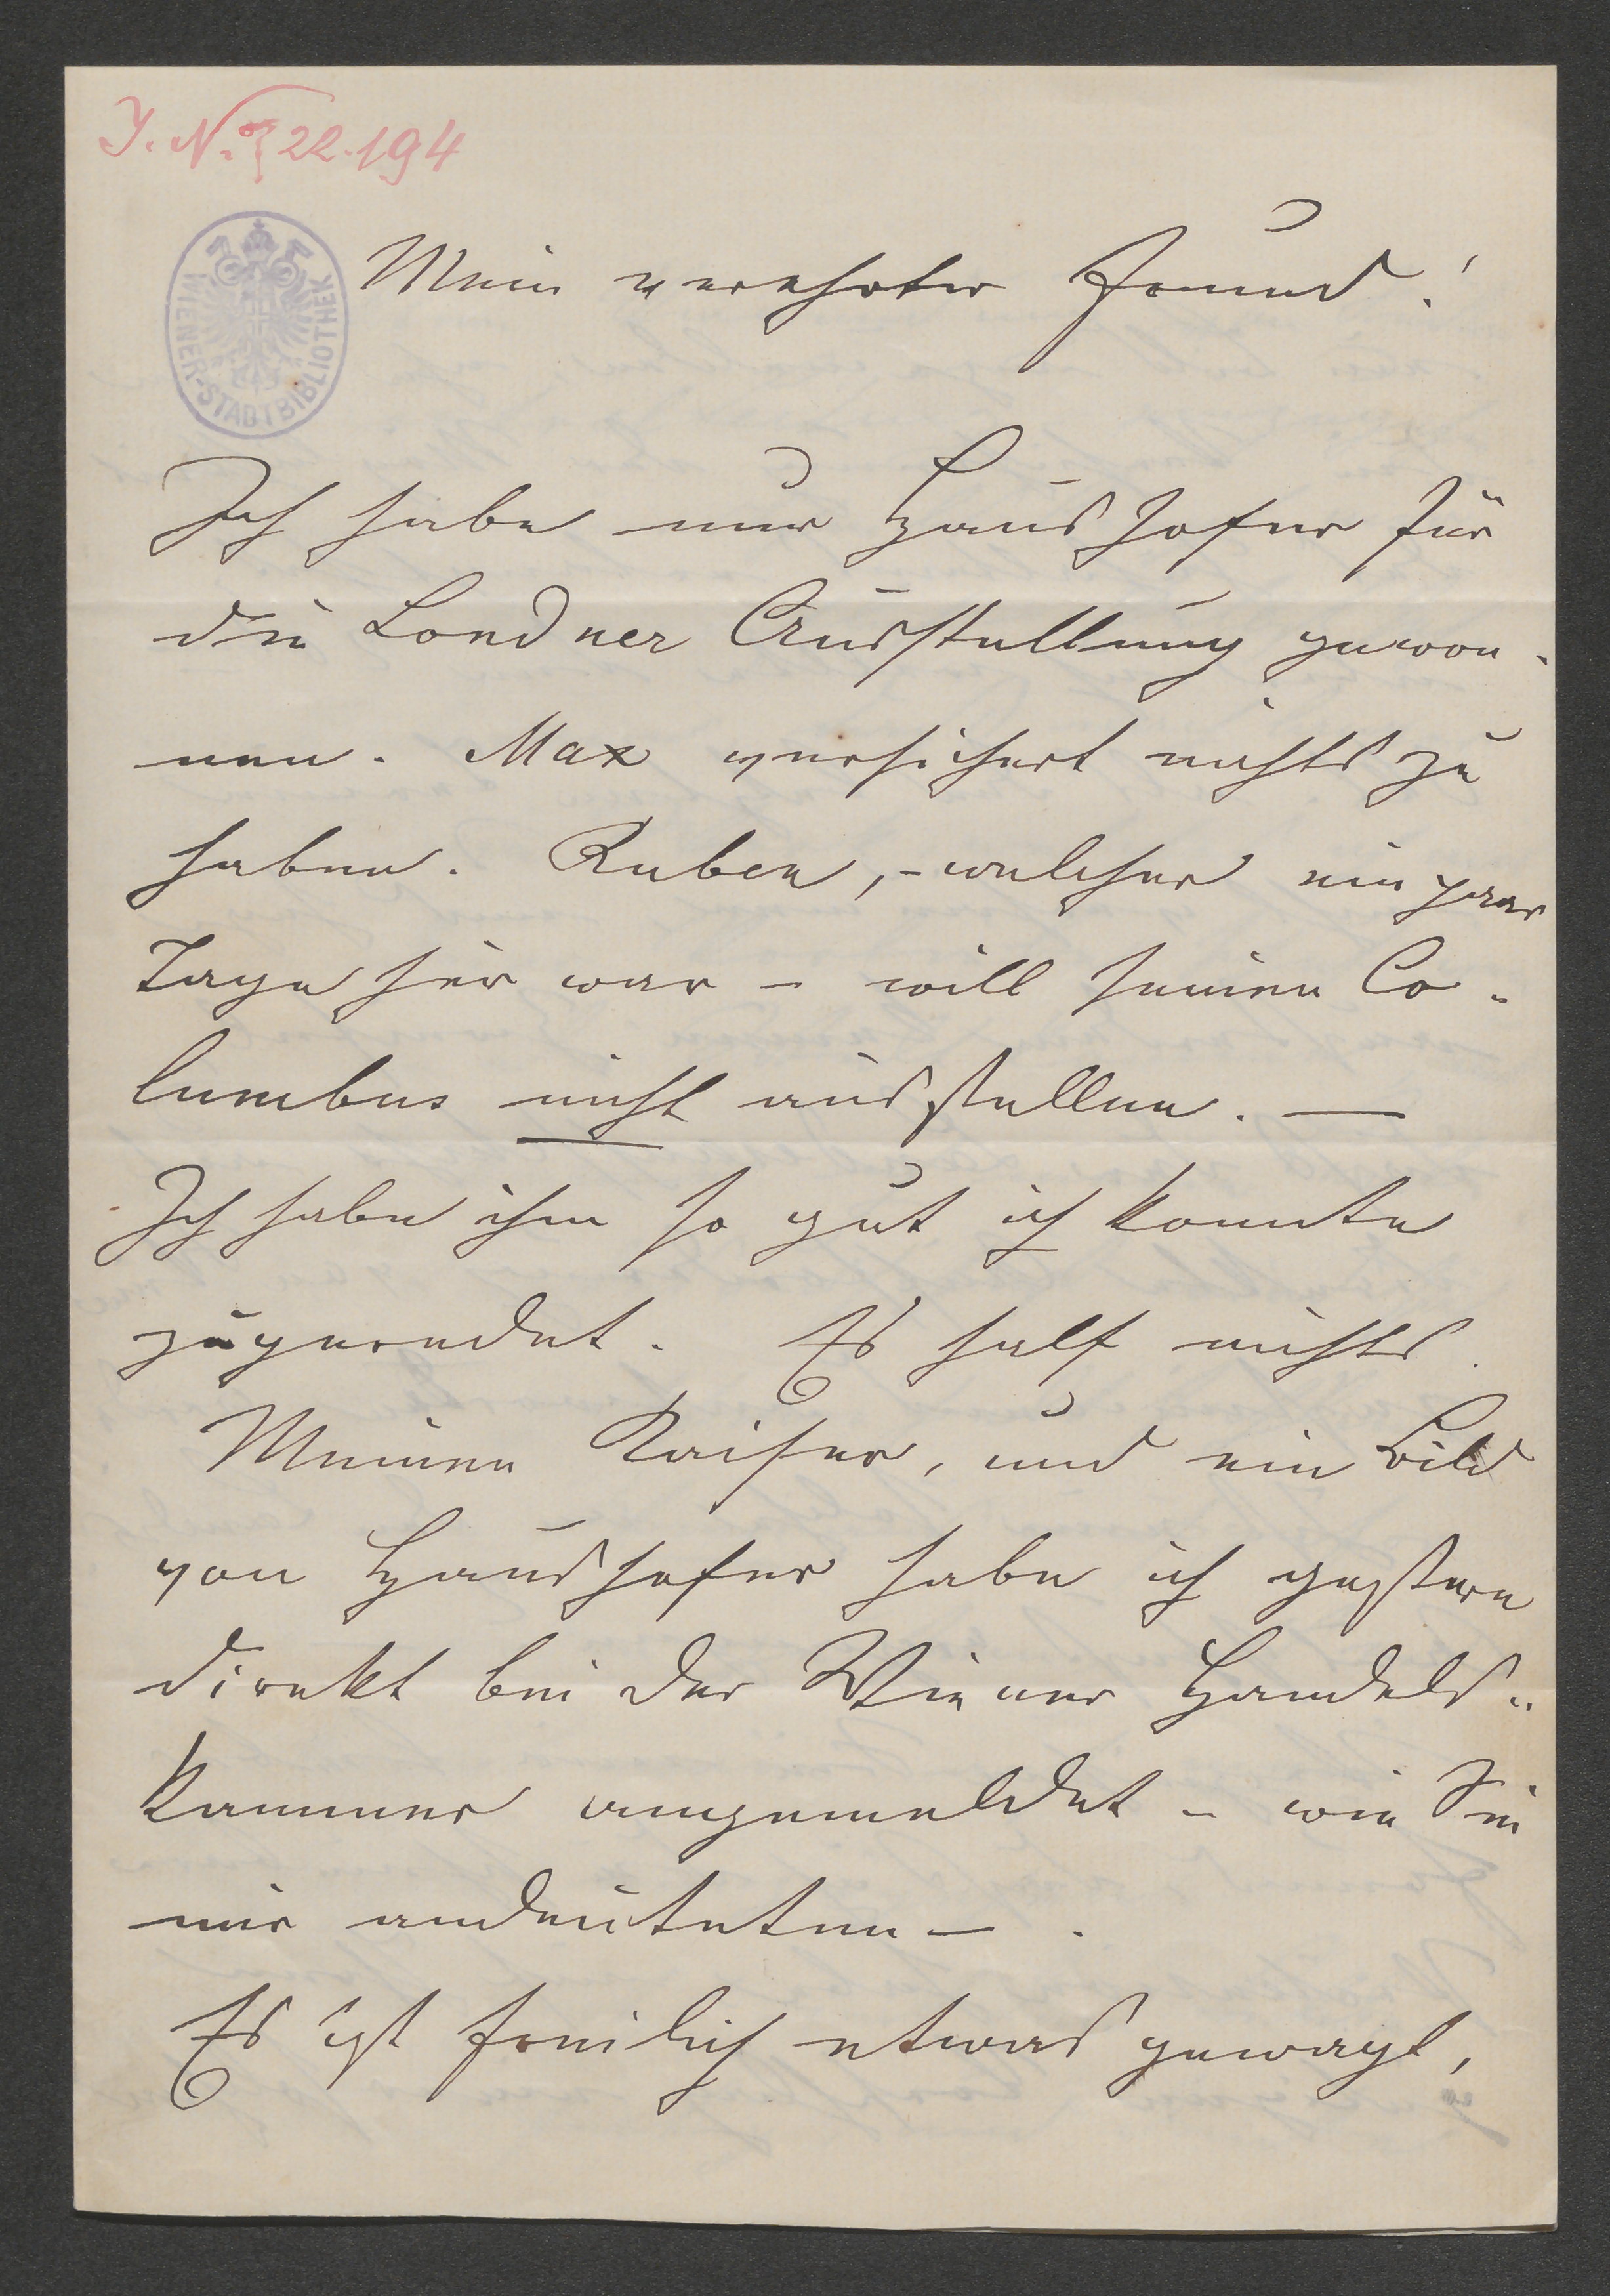 J. N. 22.194
WIENER-STADTBIBLIOTHEK
Mein verehrter Freund!
Ich habe nur Haushofer für
die Londner Ausstellung gewon-
nen. Max versichert nichts zu
haben. Ruben, - welcher ein paar
Tage hier war - will seinen Co-
lumbus nicht ausstellen. —
Ich habe ihm so gut ich konnte
zugeredet. Es half nichts.
Meinen Kaiser, und ein Bild
von Haushofer habe ich gestern
direkt bei der Wiener Handels-
kammer angemeldet - wie Sie
mir andeuteten — .
Es ist freilich etwas gewagt,